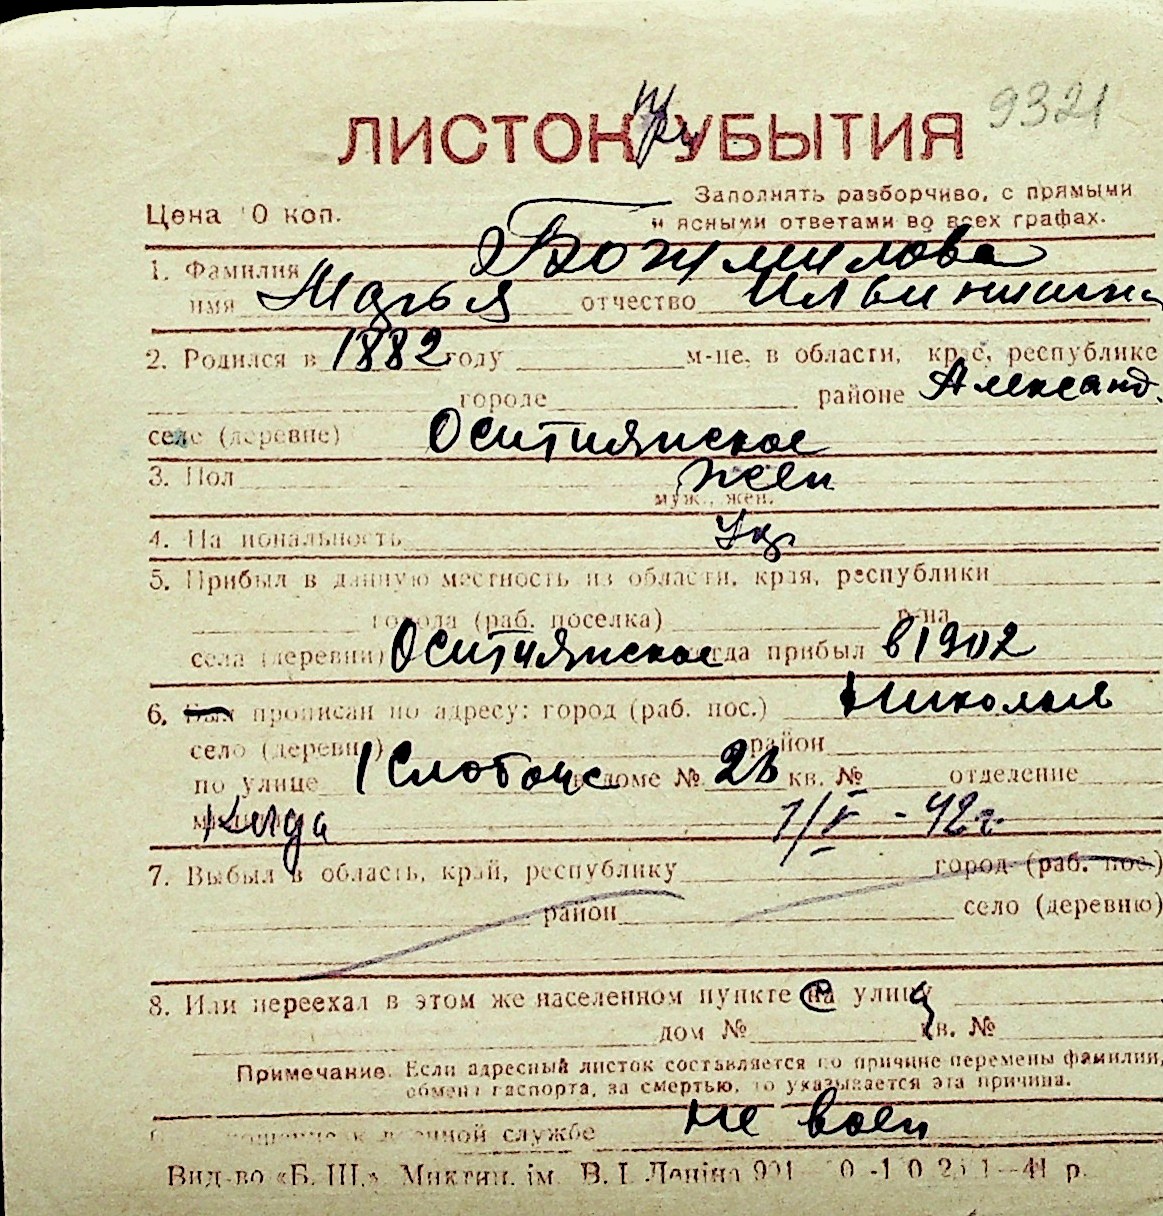 9321
ЛИСТОК УБЫТИЯ
Цена 10 коп.
Заполнять разборчиво, с прямыми
и ясными ответами во всех графах.
1. Фамилия Божмилова
имя Марья отчество Ильинишна
2. Родился в 1882 году м-це, в области, крае, республике
городе районе Александ.
селе (деревне) Оситняжское
3. Пол жен
муж., жен.
4. Национальность Укр
5. Прибыл в данную местность из области, края, республики
города (раб. поселка) р-на
села (деревни) Оситняжское когда прибыл в 1902
6. Был прописан по адресу: город (раб. пос.) Николаев
село (деревня) район
по улице 1 Слобоцс в доме № 2 кв. № отделение
милиции 1/V - 42 г.
7. Выбыл в область, край, республику город (раб. пос.)
район село (деревню)
8. Или переехал в этом же населенном пункте на улицу
дом № кв. №
Примечание. Если адресный листок составляется по причине перемены фамилии,
обмена паспорта, за смертью, то указывается эта причина.
отношение к военной службе не воен
Вид-во «Б. Ш.» Микл. ім. В. І. Леніна 41 р.